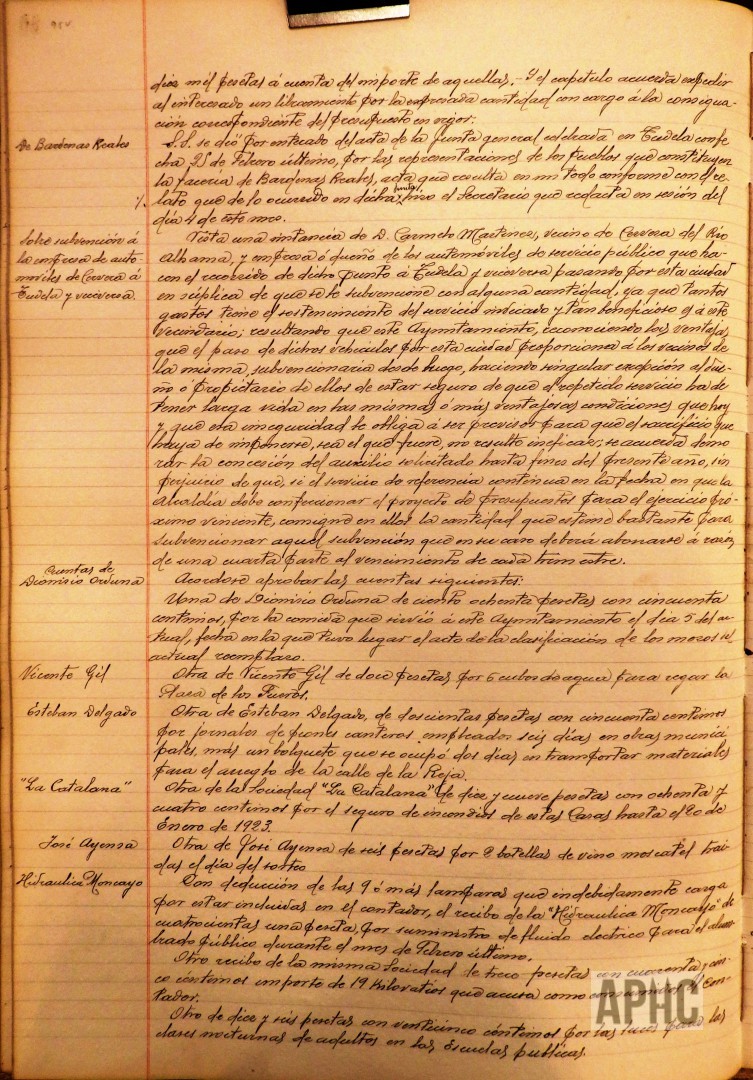 diez mil pesetas á cuenta del importe de aquellas,- Y el capitulo acuerda expedir
al interesado un libramiento por la expresada cantidad con cargo á la consigna-
ción correspondiente del presupuesto en vigor.
De Bardenas Reales
S.S. se dió por enterado del acta de la junta general celebrada en Tudela con fe-
cha 25 de Febrero último, por las representaciones de los Pueblos que constituyen
la facería de Bardenas Reales, acta que resulta en un todo conforme con el re-
lato que de lo ocurrido en dicha junta hizo el Secretario que redacta en sesión del
día 4 de este mes.
Sobre subvención á
la empresa de auto-
moviles de Cervera á
Tudela y viceversa.
Vista una instancia de D. Carmelo Martinez, vecino de Cervera del Rio
Alhama, y empresa ó dueño de los automóviles de servicio público que ha-
cen el recorrido de dicho punto á Tudela y viceversa pasando por esta ciudad
en súplica de que se le subvencione con alguna cantidad, ya que tantos
gastos tiene el sostenimiento del servicio indicado y tan beneficioso es á este
vecindario; resultando que este Ayuntamiento, reconociendo las ventajas
que el paso de dichos vehiculos por esta ciudad proporciona á los vecinos de
la misma, subvencionaria desde luego, haciendo singular excepción al due-
ño ó propietario de ellos de estar seguro de que el repetido servicio ha de
tener larga vida en las mismas ó más ventajosas condiciones que hoy
y que esa inseguridad le obliga á ser previsor para que el sacrificio que
haya de imponerse, sea el que fuere, no resulte ineficaz; se acuerda demo-
rar la concesión del auxilio solicitado hasta fines del presente año, sin
perjuicio de que, si el servicio de referencia continua en la fecha en que la
Alcaldía debe confeccionar el proyecto de presupuestos para el ejercicio pró-
ximo viniente, consigne en ellos la cantidad que estime bastante para
subvencionar aquel, subvención que en su caso deberá abonarse á razón
de una cuarta parte al vencimiento de cada trimestre.
Cuentas de
Dionisio Orduna
Acordose aprobar las cuentas siguientes:
Una de Dionisio Orduna de ciento ochenta pesetas con cincuenta
centimos, por la comida que sirvió á este Ayuntamiento el dia 5 del ac-
tual, fecha en la que tuvo lugar el acto de la clasificación de los mozos del
actual reemplazo.
Vicente Gil
Otra de Vicente Gil de doce pesetas por 6 cubos de agua para regar la
Plaza de los Fueros.
Esteban Delgado
Otra de Esteban Delgado, de doscientas pesetas con cincuenta centimos
por jornales de peones canteros, empleados seis días en obras munici-
pales, más un bolquete que se ocupó dos días en transportar materiales
para el arreglo de la calle de la Reja.
"La Catalana"
Otra de la Sociedad "La Catalana" de diez y nueve pesetas con ochenta y
cuatro centimos por el seguro de incendios de estas Casas hasta el 20 de
Enero de 1923.
José Ayensa
Otra de José Ayensa de seis pesetas por 2 botellas de vino moscatel trai-
das el día del sorteo
Hidraulica Moncayo
Con deducción de las 9 ó más lamparas que indebidamente carga
por estar incluidas en el contador, el recibo de la "Hidraulica Moncayo" de
cuatrocientas una peseta, por suministro de fluido electrico para el alum-
brado público durante el mes de Febrero último.
Otro recibo de la misma Sociedad de trece pesetas con cuarenta y cin-
co céntimos importe de 19 kilovatios que acusa como consumidos el Con-
tador.
Otro de diez y seis pesetas con venticinco céntimos por las luces para las
clases nocturnas de adultos en las Escuelas publicas.
APHC